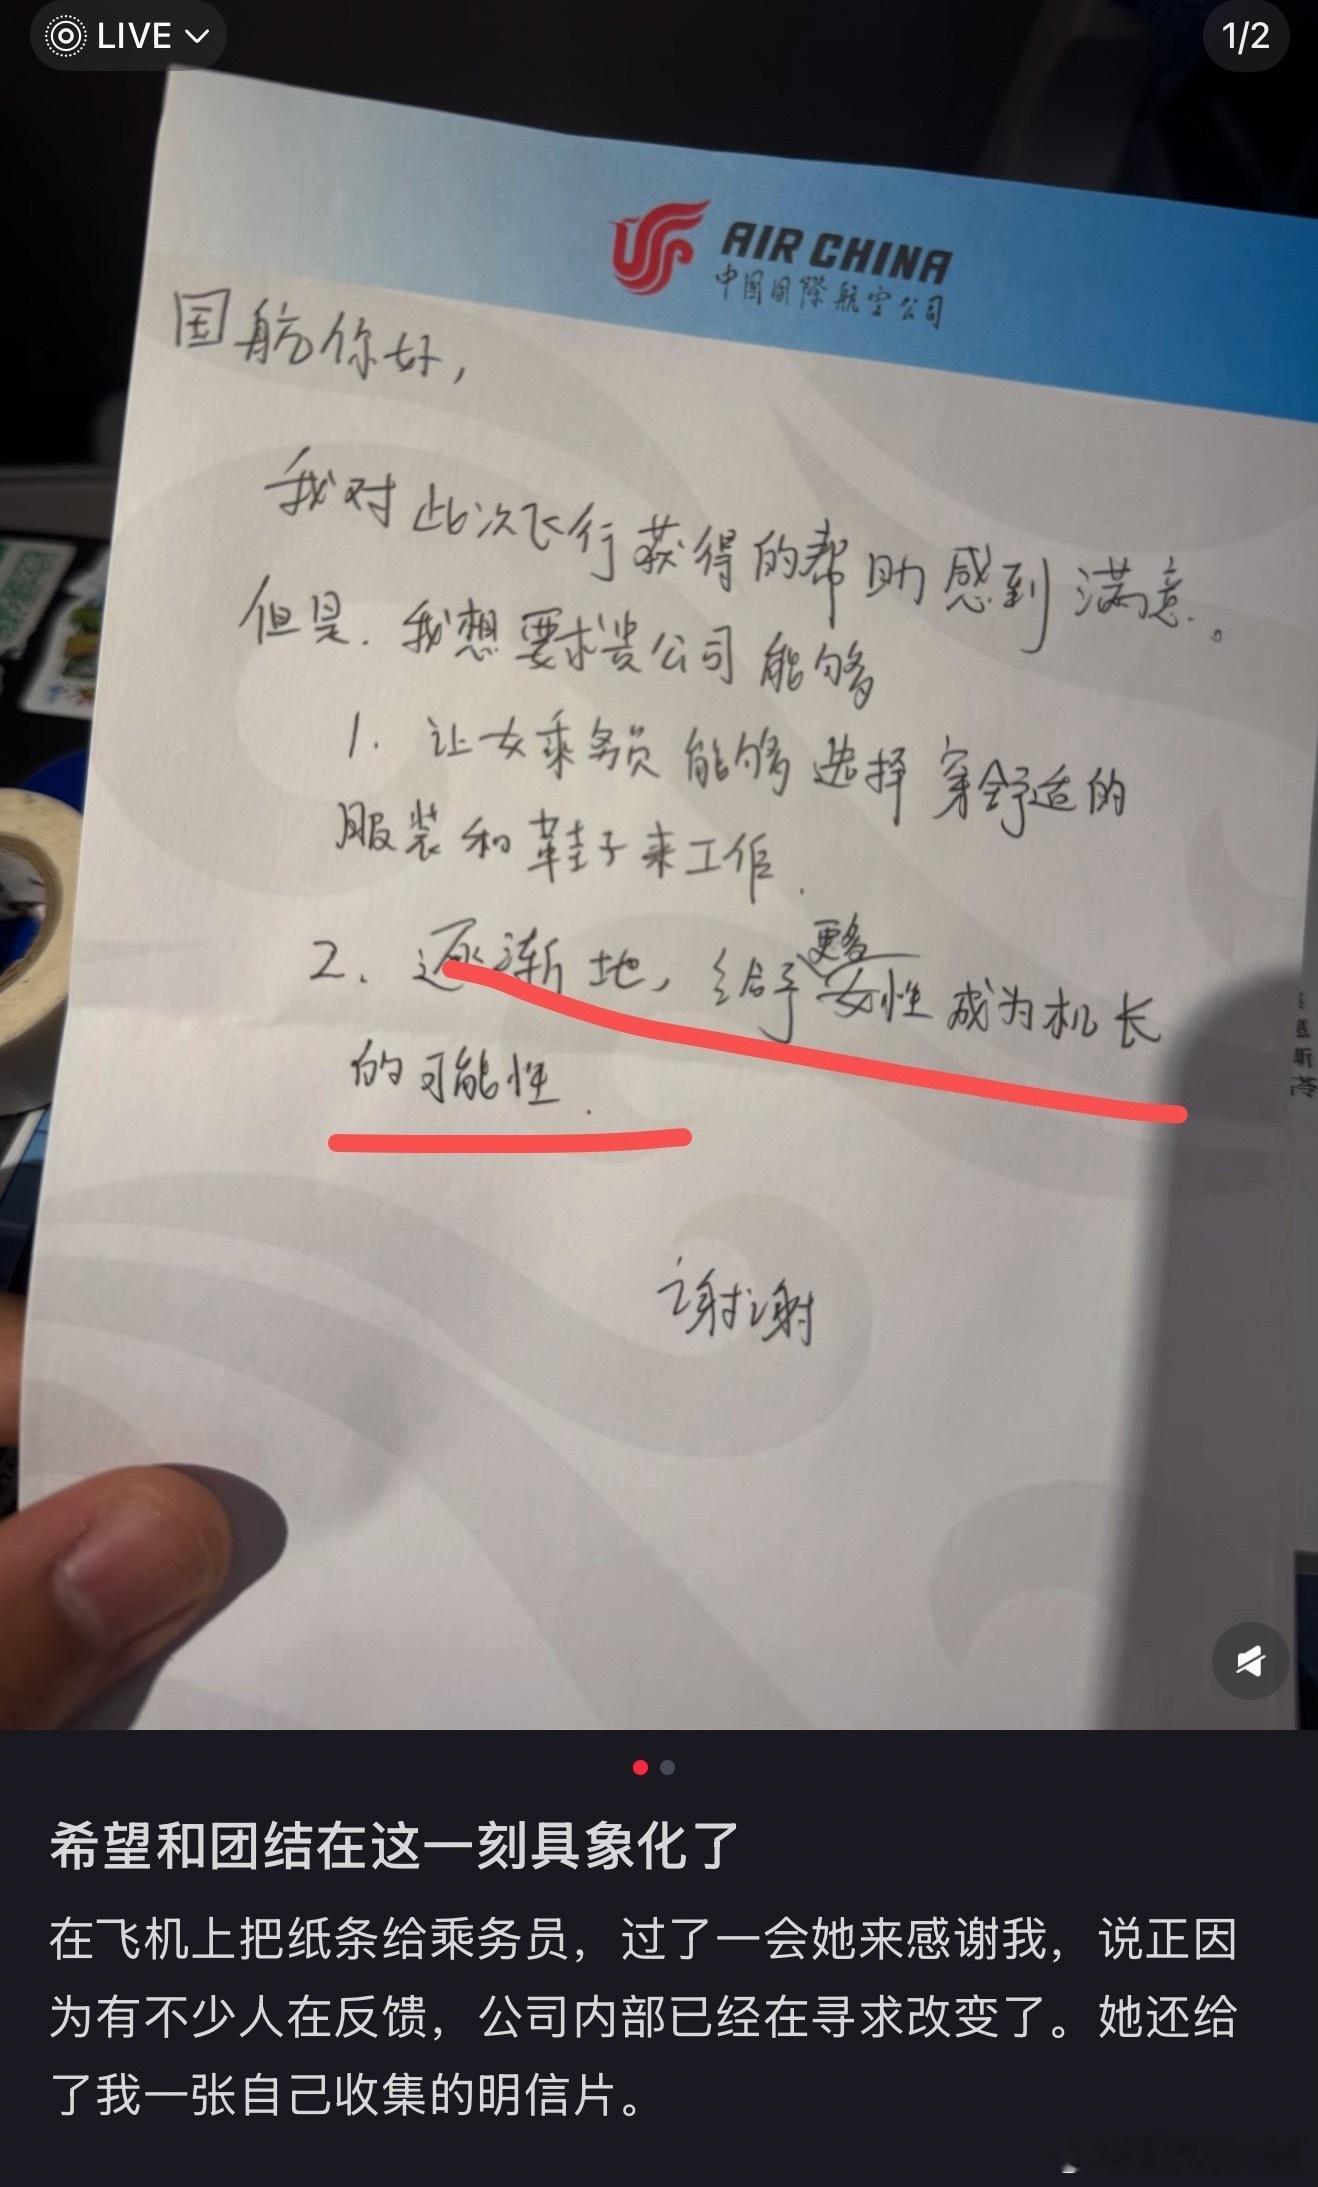 LIVE
1/2
AIR CHINA
中国国際航空公司
国航你好，
我对此次飞行获得的帮助感到满意。
但是，我想要求贵公司能够
1. 让女乘务员能够选择穿舒适的
服装和鞋子来工作.
更多
2. 逐渐地，给予女性成为机长
的可能性.
谢谢
希望和团结在这一刻具象化了
在飞机上把纸条给乘务员，过了一会她来感谢我，说正因
为有不少人在反馈，公司内部已经在寻求改变了。她还给
了我一张自己收集的明信片。